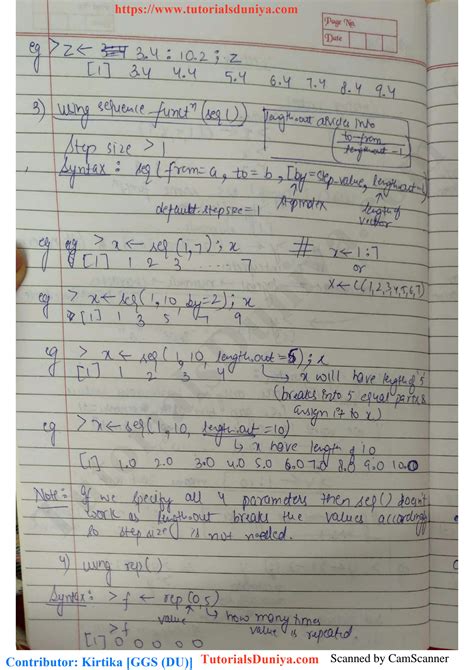 https://www.tutorialsduniya.com
Page No.
Date
eg > z ← 3.4 : 10.2 ; z
[1] 3.4 4.4 5.4 6.4 7.4 8.4 9.4
3) using sequence functn (seq())
length.out divides into
to-from
length.out - 1
Step size > 1
Syntax : seq (from=a, to=b, [by=step-value, length.out=
default stepsize=1
length of
vector
eg > x ← seq(1,7) ; x # x ← 1:7
[1] 1 2 3 ..... 7 or
x ← c(1,2,3,4,5,6,7)
eg > x ← seq(1,10 by=2) ; x
[1] 1 3 5 7 9
eg > x ← seq(1,10, length.out=5) ; x
[1] 1 2 3 4 ↳ x will have length of 5
(breaks into 5 equal parts &
assign it to x)
eg > x ← seq(1,10, length.out=10)
↳ x have length of 10
[1] 1.0 2.0 3.0 4.0 5.0 6.0 7.0 8.0 9.0 10.0
Note:- If we specify all 4 parameters then seq() doesn't
work as length.out breaks the values accordingly
so step size is not needed.
4) using rep()
Syntax: > f ← rep(0,5)
value ↳ how many times
value is repeated.
> f
[1] 0 0 0 0 0
Contributor: Kirtika [GGS (DU)] TutorialsDuniya.com Scanned by CamScanner